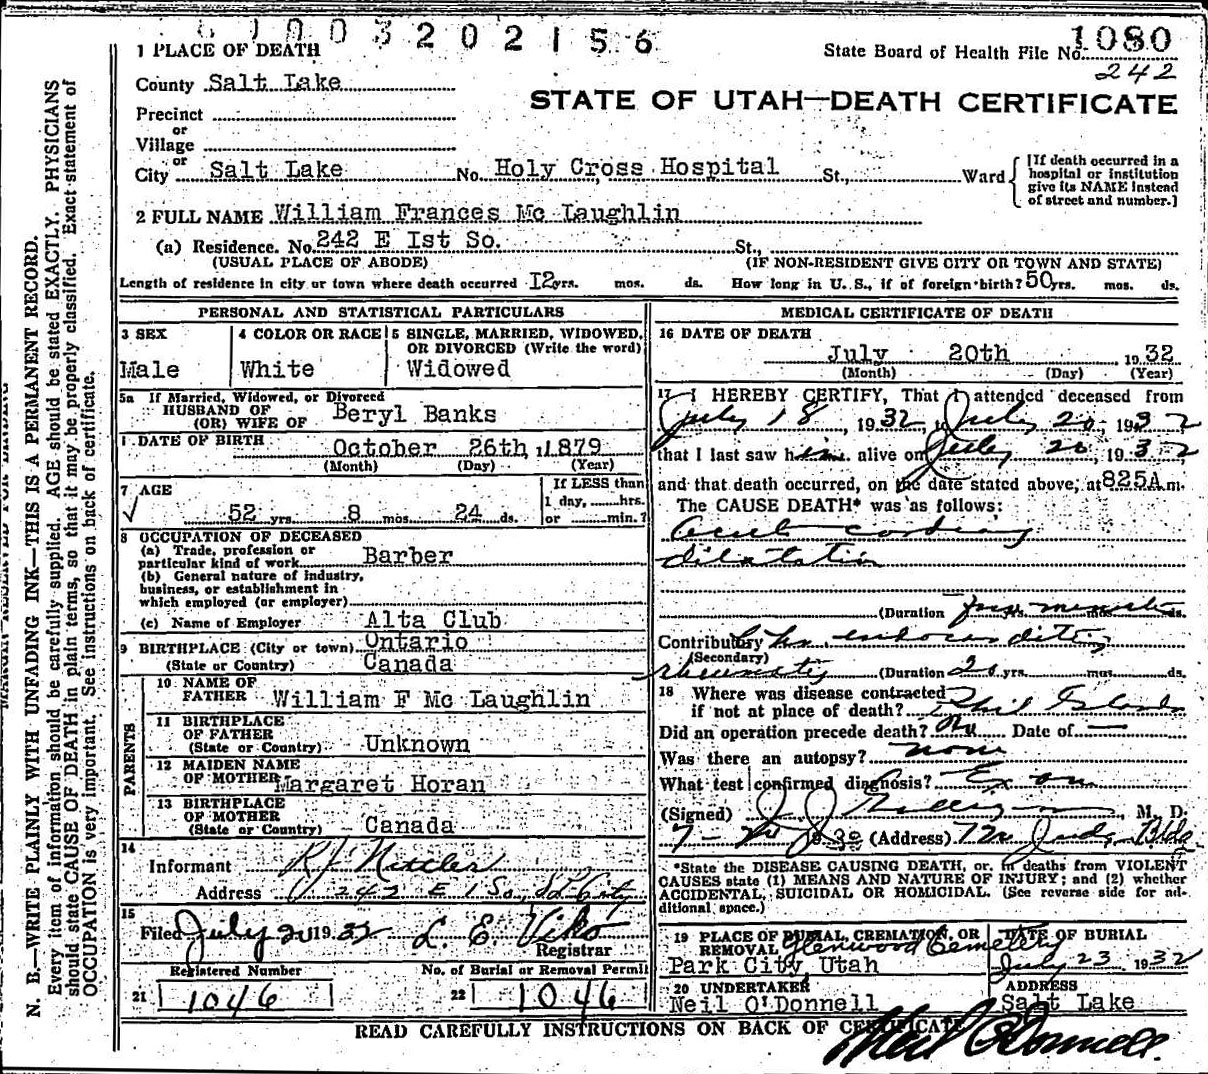 003202156
1 PLACE OF DEATH
State Board of Health File No. 1080
242
County Salt Lake
STATE OF UTAH—DEATH CERTIFICATE
Precinct
or
Village
or
City Salt Lake No. Holy Cross Hospital St., Ward
[If death occurred in a
hospital or institution
give its NAME instead
of street and number.]
2 FULL NAME William Frances Mc Laughlin
(a) Residence. No. 242 E Ist So. St.,
(USUAL PLACE OF ABODE) (IF NON-RESIDENT GIVE CITY OR TOWN AND STATE)
Length of residence in city or town where death occurred I2 yrs. mos. ds. How long in U. S., if of foreign birth? 50 yrs. mos. ds.
PERSONAL AND STATISTICAL PARTICULARS
3 SEX
Male
4 COLOR OR RACE
White
5 SINGLE, MARRIED, WIDOWED,
OR DIVORCED (Write the word)
Widowed
5a If Married, Widowed, or Divorced
HUSBAND OF
(OR) WIFE OF Beryl Banks
DATE OF BIRTH October 26th, 1879
(Month) (Day) (Year)
7 AGE
52 yrs. 8 mos. 24 ds.
If LESS than
1 day, hrs.
or min.?
8 OCCUPATION OF DECEASED
(a) Trade, profession or
particular kind of work Barber
(b) General nature of industry,
business, or establishment in
which employed (or employer)
(c) Name of Employer Alta Club
9 BIRTHPLACE (City or town) Ontario
(State or Country) Canada
PARENTS
10 NAME OF
FATHER William F Mc Laughlin
11 BIRTHPLACE
OF FATHER
(State or Country) Unknown
12 MAIDEN NAME
OF MOTHER Margaret Horan
13 BIRTHPLACE
OF MOTHER
(State or Country) Canada
14
Informant R J
Address 242 E 1 So, S L City
15
Filed July 20 1932 L. E. Viko
Registrar
Registered Number
21 1046
No. of Burial or Removal Permit
22 1046
MEDICAL CERTIFICATE OF DEATH
16 DATE OF DEATH
July 20th 1932
(Month) (Day) (Year)
17 I HEREBY CERTIFY, That I attended deceased from
July 18, 1932, to July 20, 1932
that I last saw him alive on July 20, 1932
and that death occurred, on the date stated above, at 825 A m.
The CAUSE DEATH* was as follows:
Acute cardiac
dilatation
(Duration few yrs. minutes ds.
Contributory Chr. endocarditis
(Secondary)
rheumatic (Duration 20 yrs. mos. ds.
18 Where was disease contracted
if not at place of death? Phil Islands
Did an operation precede death? No Date of —
Was there an autopsy? none
What test confirmed diagnosis? Exam
(Signed) J. J. M. D.
7-20 1932 (Address) 720 Judge Bldg
*State the DISEASE CAUSING DEATH, or, in deaths from VIOLENT
CAUSES state (1) MEANS AND NATURE OF INJURY; and (2) whether
ACCIDENTAL, SUICIDAL OR HOMICIDAL. (See reverse side for ad-
ditional space.)
19 PLACE OF BURIAL, CREMATION, OR
REMOVAL Glenwood Cemetery
Park City, Utah
DATE OF BURIAL
July 23 1932
20 UNDERTAKER
Neil O'Donnell
ADDRESS
Salt Lake
READ CAREFULLY INSTRUCTIONS ON BACK OF CERTIFICATE
Neil O'Donnell.
N. B.—WRITE PLAINLY WITH UNFADING INK—THIS IS A PERMANENT RECORD.
Every item of information should be carefully supplied. AGE should be stated EXACTLY. PHYSICIANS
should state CAUSE OF DEATH in plain terms, so that it may be properly classified. Exact statement of
OCCUPATION is very important. See instructions on back of certificate.